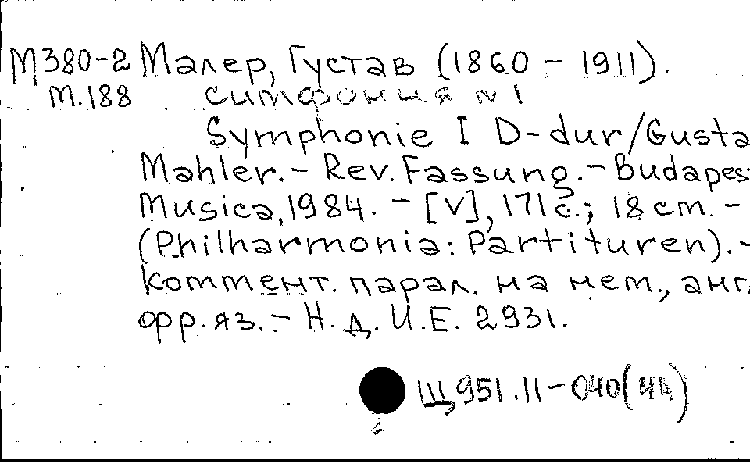 М380-2 Малер, Густав (1860 - 1911).
М.188 Симфония № 1
Symphonie I D-dur/Gusta
Mahler.- Rev. Fassung.- Budapes
Musica, 1984. - [V], 171 с.; 18 cm. -
(Philharmonia: Partituren). -
Коммент. парал. на нем., анг
фр. яз. - Н. д. И.Е. 2931.
Щ951.11-040(4